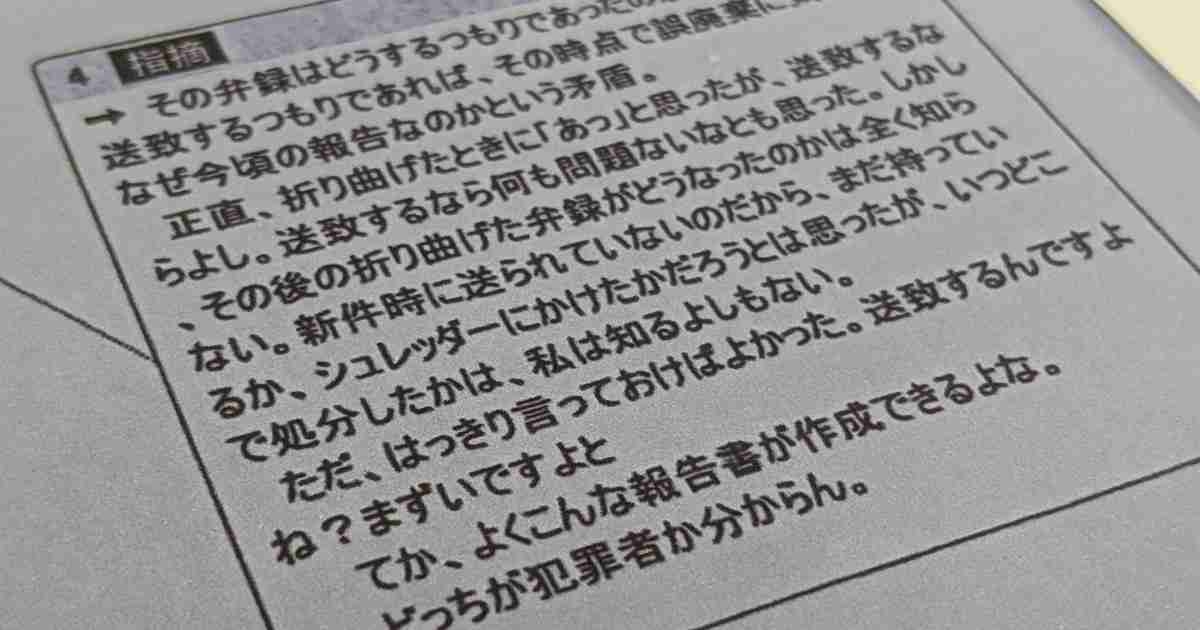 4 指摘
→ その弁録はどうするつもりであったの
送致するつもりであれば、その時点で誤廃棄に
なぜ今頃の報告なのかという矛盾。
正直、折り曲げたときに「あっ」と思ったが、送致するな
らよし。送致するなら何も問題ないなとも思った。しかし
、その後の折り曲げた弁録がどうなったのかは全く知ら
ない。新件時に送られていないのだから、まだ持ってい
るか、シュレッダーにかけたかだろうとは思ったが、いつどこ
で処分したかは、私は知るよしもない。
ただ、はっきり言っておけばよかった。送致するんですよ
ね？まずいですよと
てか、よくこんな報告書が作成できるよな。
どっちが犯罪者か分からん。